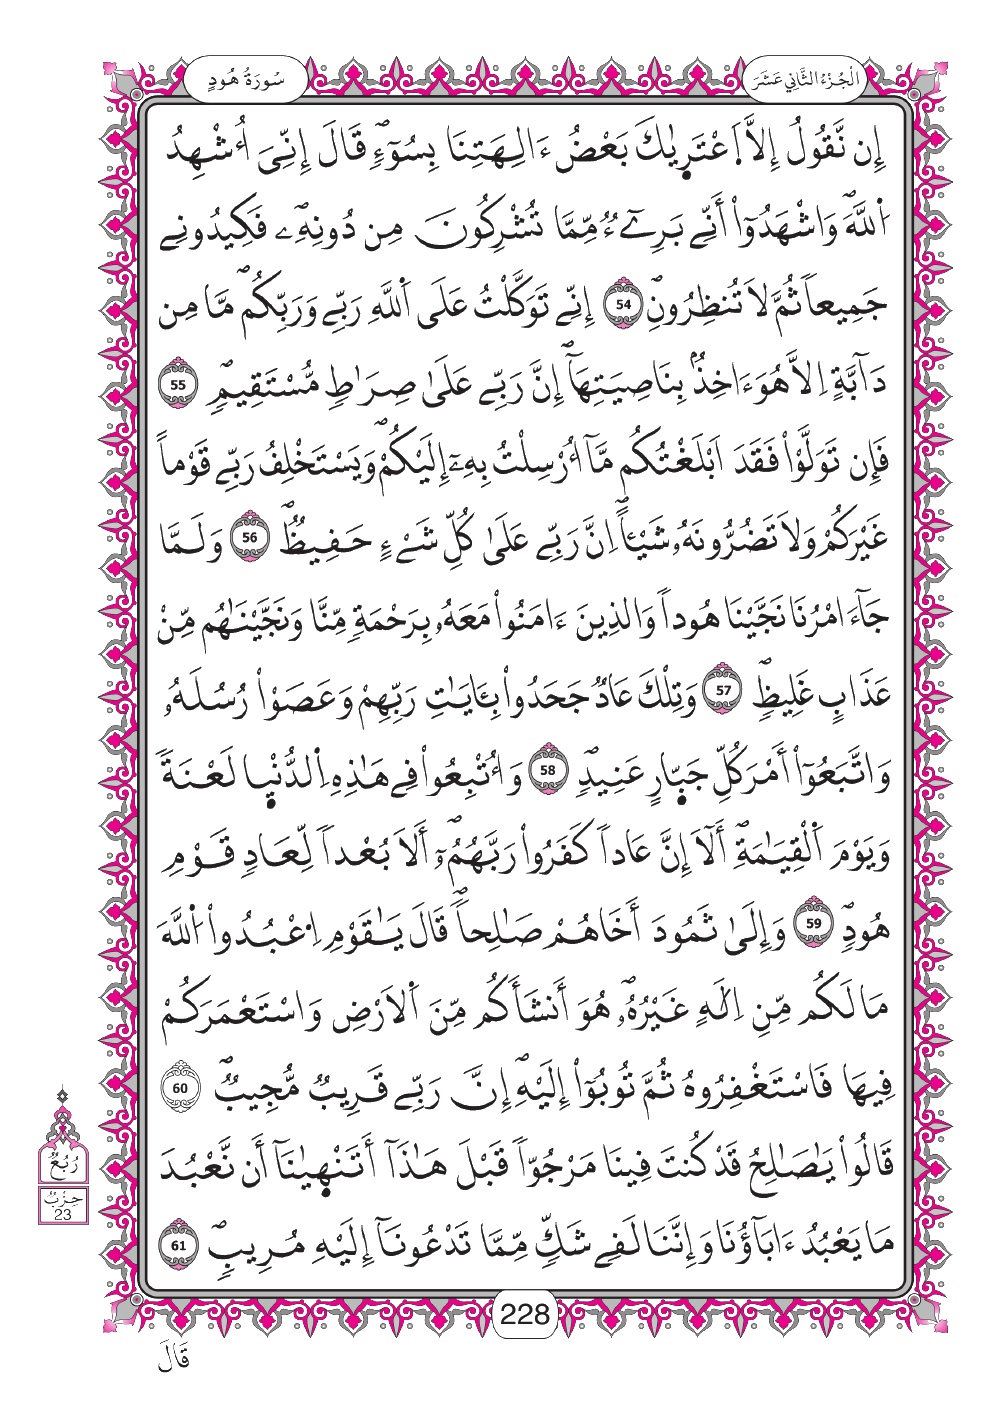 سُورَةُ هُودٍ
الْجُزْءُ الثَّانِي عَشَرَ
إِن نَّقُولُ إِلاَّ اَ۪عْتَر۪ىٰكَ بَعْضُ ءَالِهَتِنَا بِسُوٓءٖۖ قَالَ إِنِّيَ أُشْهِدُ
اُ۬للَّهَۖ وَاشْهَدُوٓاْ أَنِّے بَرِےٓءٞ مِّمَّا تُشْرِكُونَ مِن دُونِهِۦۖ فَكِيدُونِے
جَمِيعاٗ ثُمَّ لَا تُنظِرُونِۖ 54 إِنِّے تَوَكَّلْتُ عَلَى اَ۬للَّهِ رَبِّے وَرَبِّكُمۖ مَّا مِن
دَآبَّةٍ اِلَّا هُوَ ءَاخِذُۢ بِنَاصِيَتِهَآۖ إِنَّ رَبِّے عَلَىٰ صِرَٰطٖ مُّسْتَقِيمٖۖ 55
فَإِن تَوَلَّوْاْ فَقَدَ اَبْلَغْتُكُم مَّآ أُرْسِلْتُ بِهِۦٓ إِلَيْكُمْۖ وَيَسْتَخْلِفُ رَبِّے قَوْماً
غَيْرَكُمْ وَلَا تَضُرُّونَهُۥ شَيْـٔاًۖ اِنَّ رَبِّے عَلَىٰ كُلِّ شَےْءٍ حَفِيظٞۖ 56 وَلَمَّا
جَآءَ امْرُنَا نَجَّيْنَا هُوداٗ وَالذِينَ ءَامَنُواْ مَعَهُۥ بِرَحْمَةٖ مِّنَّا وَنَجَّيْنَٰهُم مِّنْ
عَذَابٍ غَلِيظٖۖ 57 وَتِلْكَ عَادٞ جَحَدُواْ بِـَٔايَٰتِ رَبِّهِمْ وَعَصَوْاْ رُسُلَهُۥ
وَاتَّبَعُوٓاْ أَمْرَ كُلِّ جَبّ۪ارٍ عَنِيدٖۖ 58 وَأُتْبِعُواْ فِے هَٰذِهِ اِ۬لدُّنْي۪ا لَعْنَةٗ
وَيَوْمَ اَ۬لْقِيَٰمَةِۖ أَلَآ إِنَّ عَاداٗ كَفَرُواْ رَبَّهُمُۥٓۖ أَلَا بُعْداٗ لِّعَادٖ قَوْمِ
هُودٖۖ 59 وَإِلَىٰ ثَمُودَ أَخَاهُمْ صَٰلِحاٗۖ قَالَ يَٰقَوْمِ اِ۟عْبُدُواْ اُ۬للَّهَ
مَا لَكُم مِّنِ اِلَٰهٍ غَيْرُهُۥۖ هُوَ أَنشَأَكُم مِّنَ اَ۬لَارْضِ وَاسْتَعْمَرَكُمْ
فِيهَا فَاسْتَغْفِرُوهُ ثُمَّ تُوبُوٓاْ إِلَيْهِۖ إِنَّ رَبِّے قَرِيبٞ مُّجِيبٞۖ 60
قَالُواْ يَٰصَٰلِحُ قَدْ كُنتَ فِينَا مَرْجُوّاٗ قَبْلَ هَٰذَآ أَتَنْه۪ىٰنَآ أَن نَّعْبُدَ
مَا يَعْبُدُ ءَابَآؤُنَا وَإِنَّنَا لَفِے شَكّٖ مِّمَّا تَدْعُونَآ إِلَيْهِ مُرِيبٖۖ 61
رُبُعُ
حِزْبُ
23
228
قَالَ